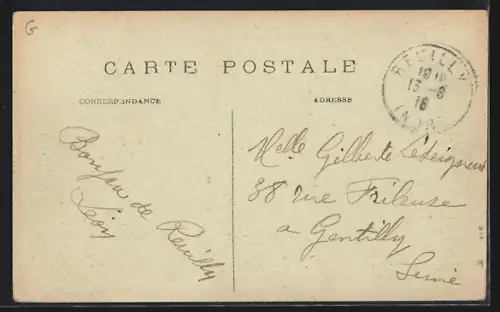 G
CARTE POSTALE
CORRESPONDANCE
ADRESSE
REUILLY
16
INDRE
Bonjour de Reuilly
Léon
Melle Gilberte Leseigneur
38 rue Frileuse
a Gentilly
Seine